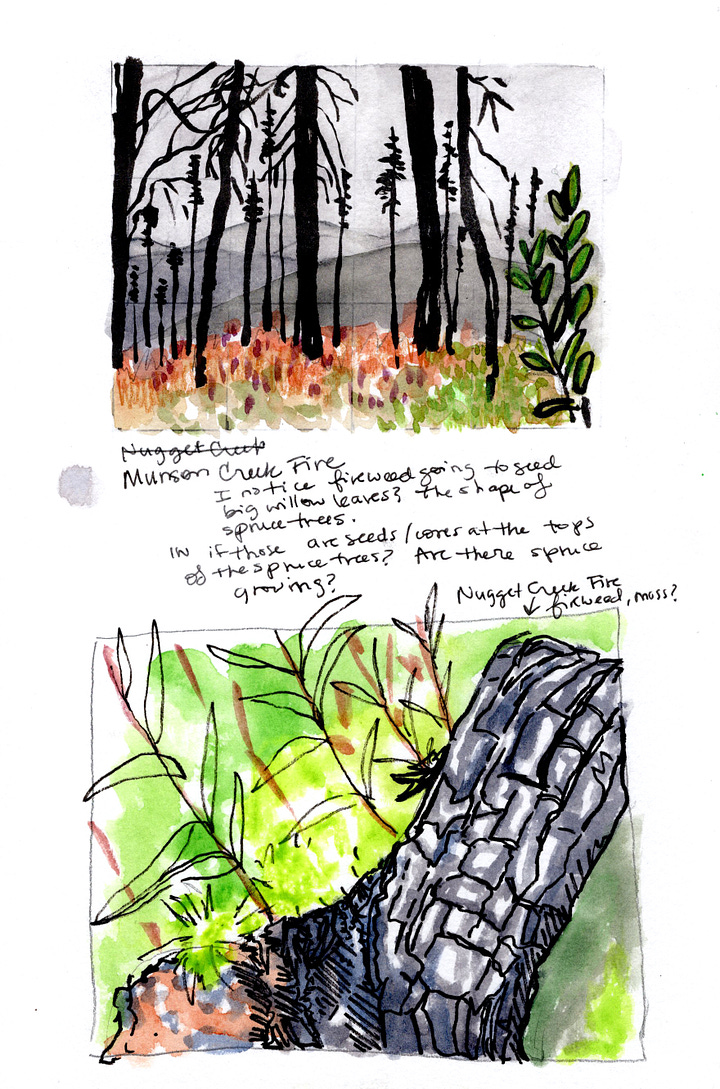 Nugget Creek
Munson Creek Fire
I notice fireweed going to seed
big willow leaves? the shape of
spruce trees.
IW if those are seeds/cones at the tops
of the spruce trees? Are there spruce
growing?
Nugget Creek Fire
fireweed, moss?